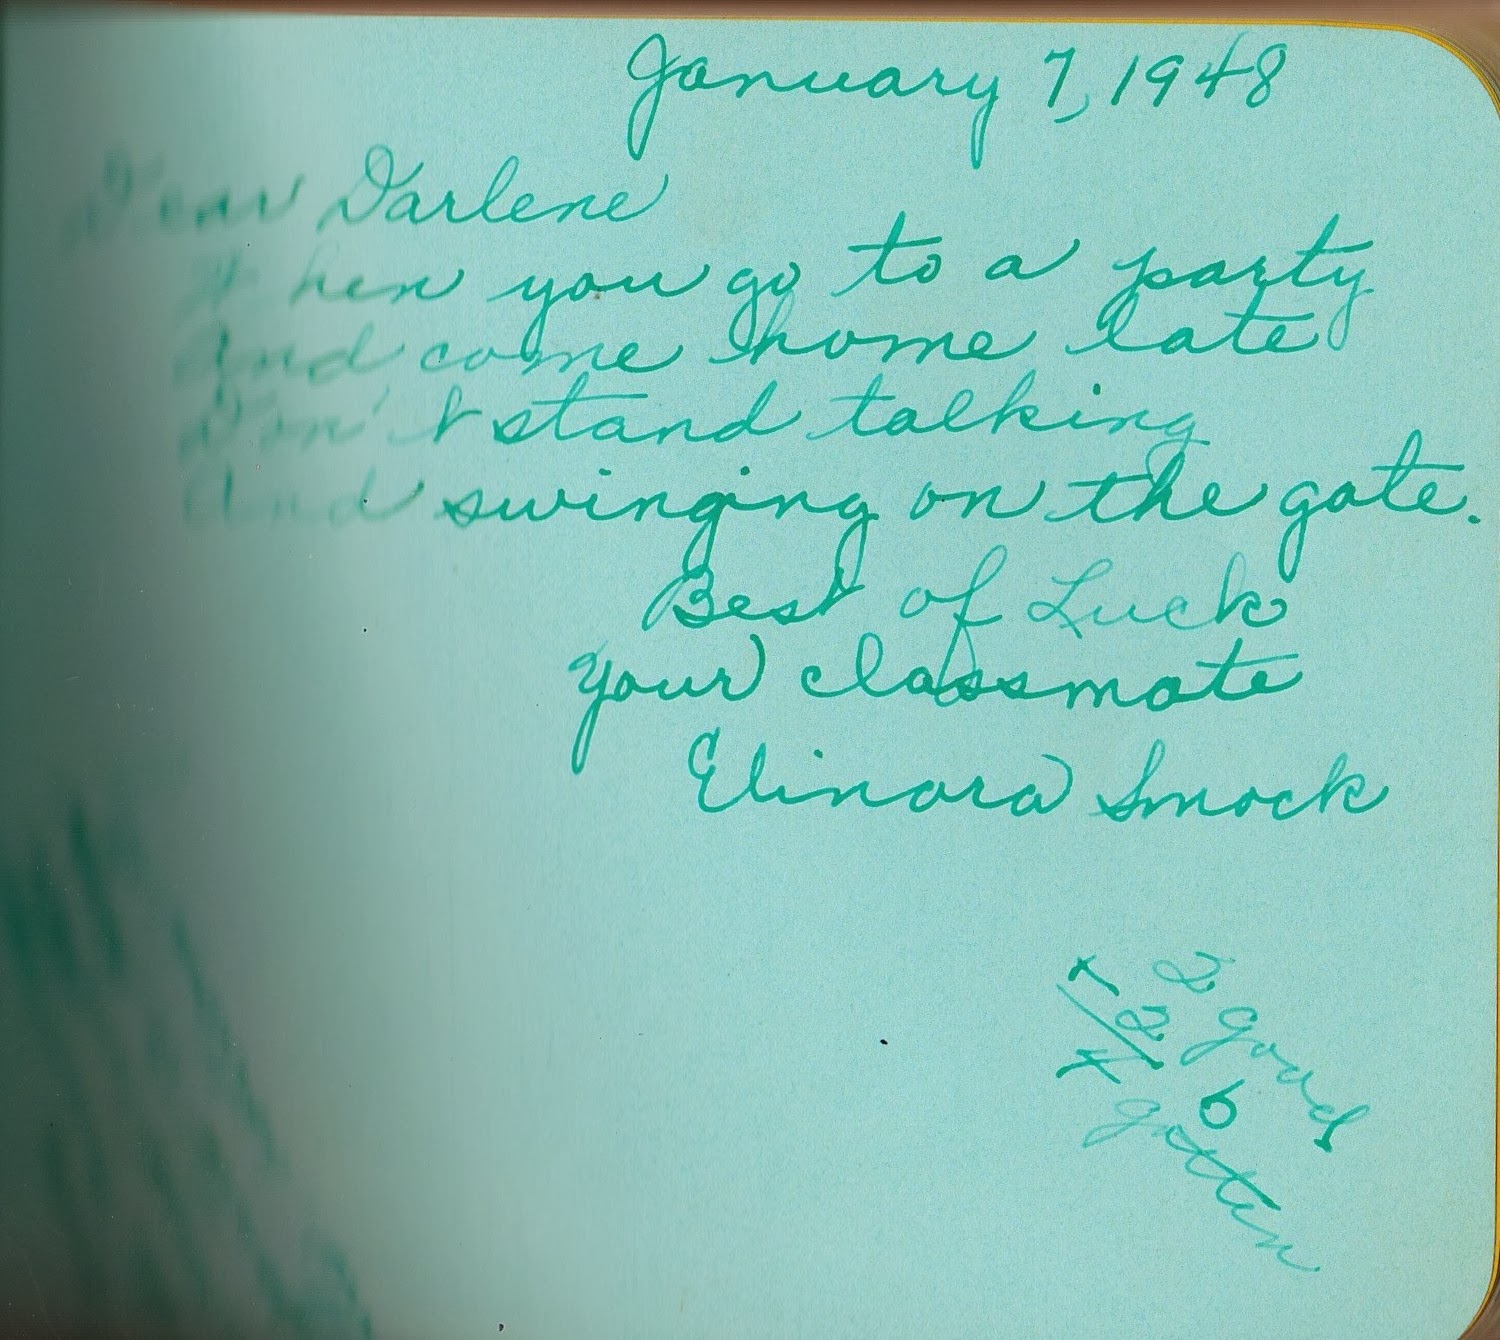 January 7, 1948
Dear Darlene
When you go to a party
And come home late
Don't stand talking
And swinging on the gate.
Best of Luck
Your classmate
Elinora Smock
2 good
+ 2 b
4 gotten